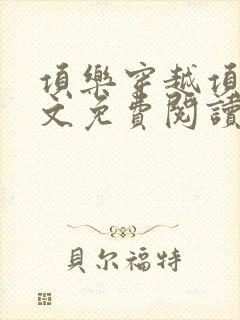 頂樂穿越頂
文免費閱讀
貝尔福特